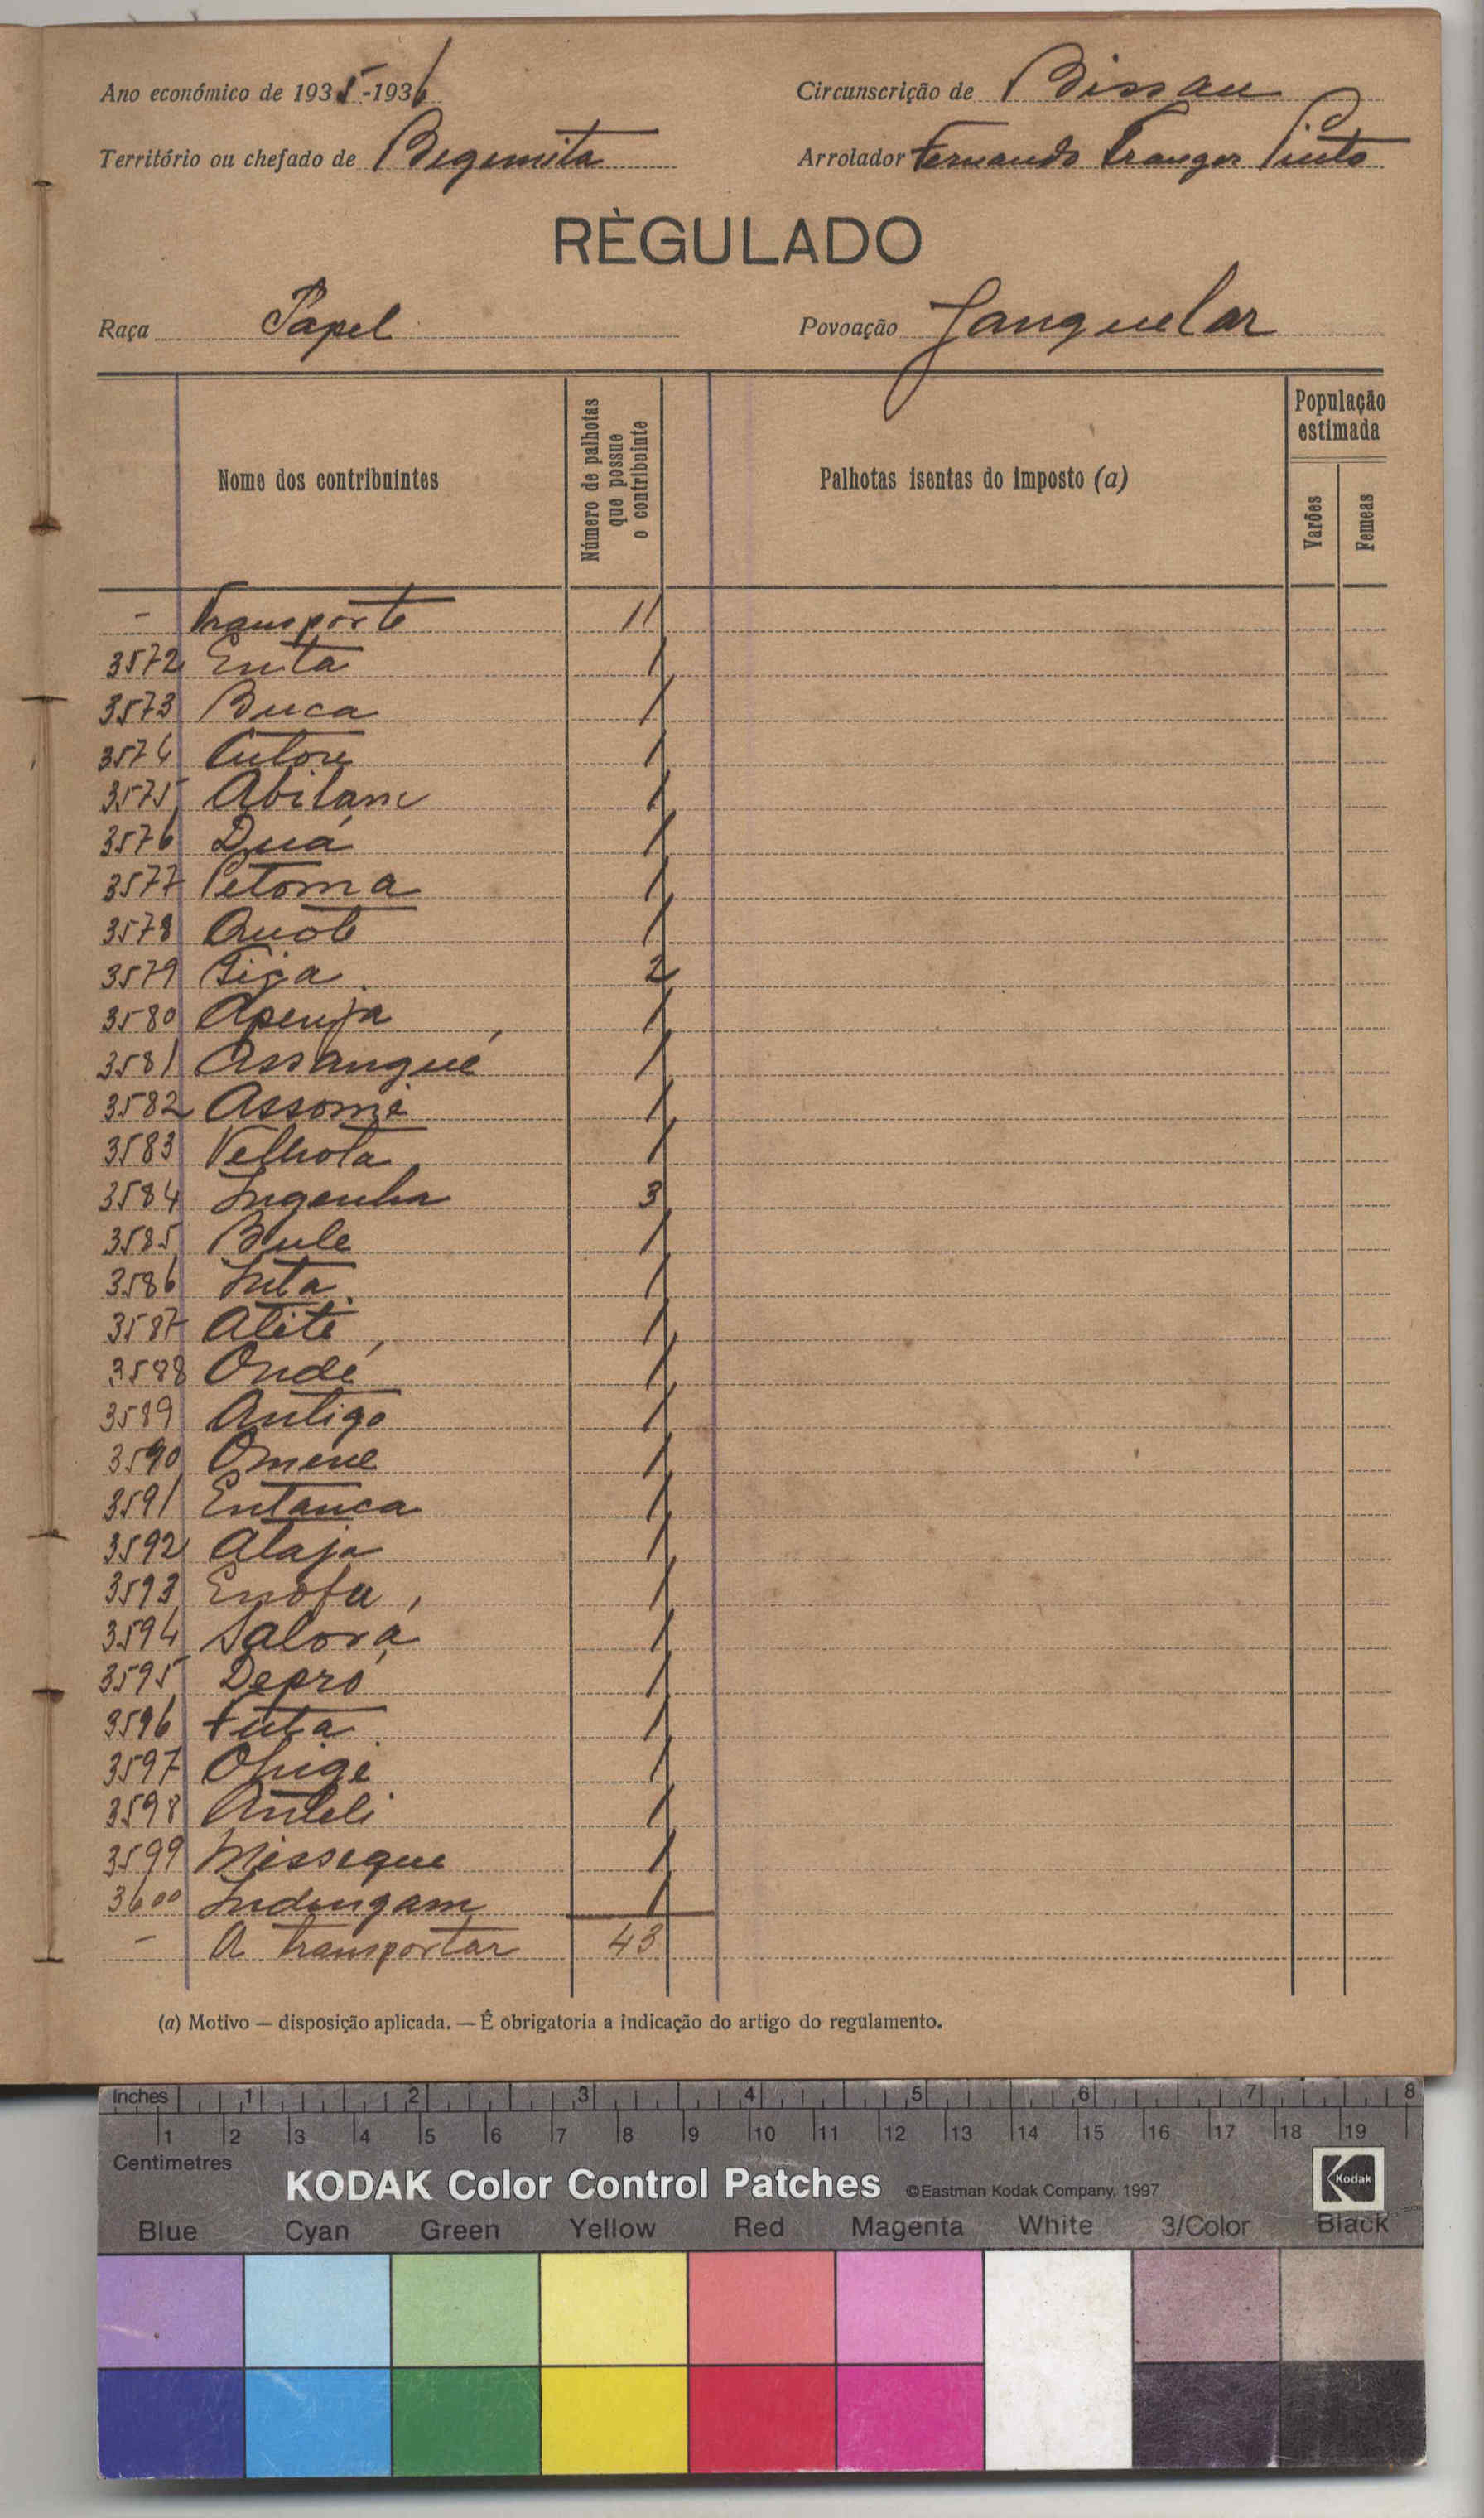 Ano económico de 1935-1936
Circunscrição de Bissau
Território ou chefado de Begemita
Arrolador Fernando Pinto
RÈGULADO
Raça Papel
Povoação Janquelar
Nome dos contribuintes
Número de palhotas que possue o contribuinte
Palhotas isentas do imposto (a)
População estimada
Varões
Femeas
- Transporte 11
3572 Enta 1
3573 Buca 1
3574 1
3575 Abilam 1
3576 Duá 1
3577 Petoma 1
3578 Quote 1
3579 2
3580 1
3581 Assangué 1
3582 Assomé 1
3583 Velhota 1
3584 Ingenha 3
3585 Bule 1
3586 Inta 1
3587 1
3588 Ondé 1
3589 Antigo 1
3590 Omene 1
3591 Entanca 1
3592 1
3593 1
3594 Salorá 1
3595 Depró 1
3596 1
3597 1
3598 1
3599 Misseque 1
3600 Indingam 1
- A transportar 43
(a) Motivo — disposição aplicada. — É obrigatoria a indicação do artigo do regulamento.
Inches 1 2 3 4 5 6 7 8
1 2 3 4 5 6 7 8 9 10 11 12 13 14 15 16 17 18 19
Centimetres
KODAK Color Control Patches ©Eastman Kodak Company, 1997 Kodak
Blue Cyan Green Yellow Red Magenta White 3/Color Black